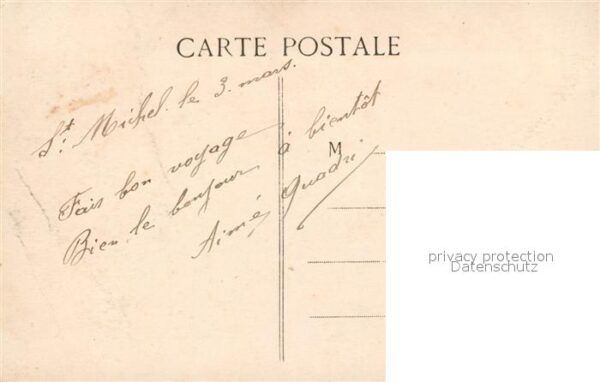 CARTE POSTALE
St. Michel. le 3. mars.
Fais bon voyage
Bien le bonjour à bientôt
Aimé Quadri
M
privacy protection
Datenschutz